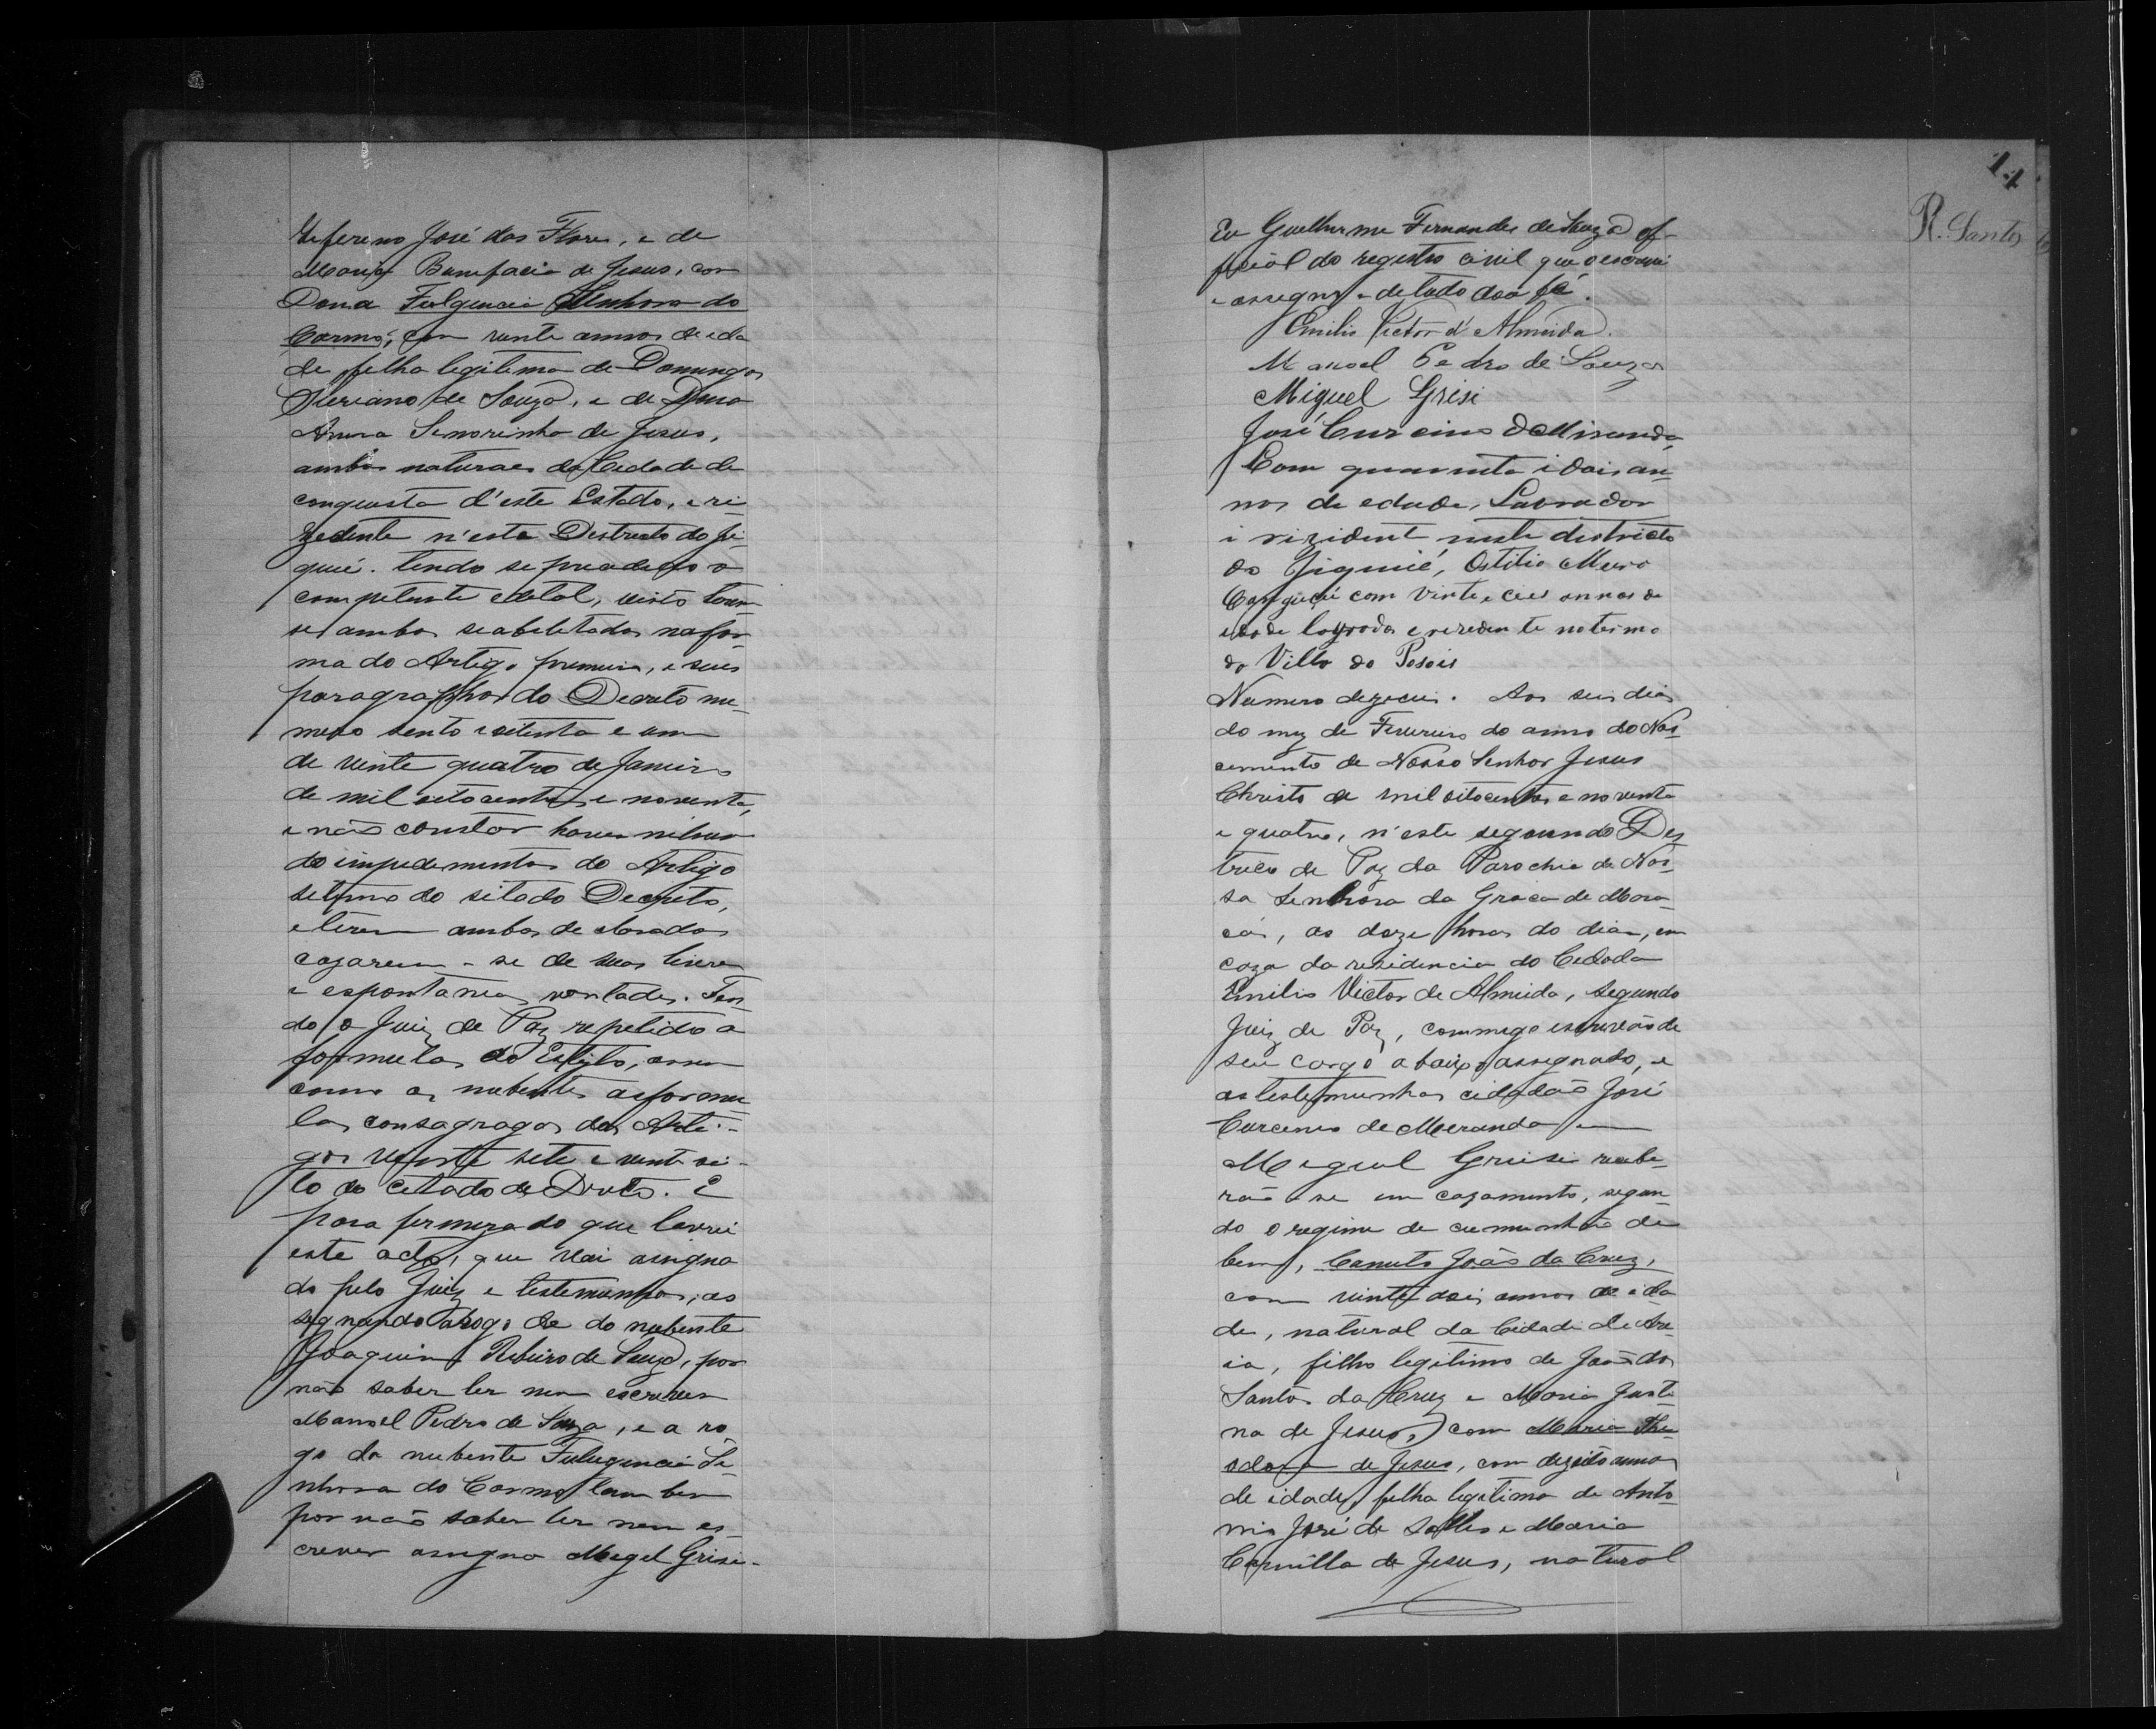 Zeferino José das Flores, e de
Maria Bunifacia de Jesus, com
Dona Fulgencia Senhora do
Carmo, com vinte annos de ida
de filha legitima de Domingos
de Souza, e de Dona
Anna Senorinha de Jesus,
ambos naturaes da Cidade de
conquista d'este Estado, e ri-
zedente n'este Destricto do Ji-
quié. tendo se o
competente edetal, visto
se ambos seabeletados nafor-
ma do Artigo premeiro, e seus
paragraphos do Decreto nu-
mero sento e oitenta e um
de vinte quatro de Janeiro
de mil oitocentos e noventa,
e não constar haver nihum
do impedimentos do Artigo
setimo do sitado Decreto,
e terem ambos declarados
cazarem-se de suas livres
e espontanias vontades. Ten-
do o Juiz de Paz repetido a
formulas do Estylo, assim
como os nubentes asformu-
las consagragas dos Arti-
gos vinte sete e vente oi-
to do Citado de Dreto. E
para fermeza do que lavrei
este acto, que vai assigna
do pelo Juiz e testemunhas, as
segnando arogo de do nubente
Joaquim Ribeiro de Souza, por
não saber ler nem escrever
Manoel Pedro de Souza, e a ro
go da nubente Fulugencia Se-
nhora do Carmo tambem
por não saber ler nem es-
crever assigno Megel Grisi-
11
R. Santos
Eu Guelherme Fernandes de Souza of-
ficial do registro civil que o escrevi
e assegno e detudo dou fé.
Emilio Victor d'Almeida.
Manoel Pedro de Souza
Miguel Grisi
José Curcino de Miranda,
Com quarenta i dois an-
nos de edade, Lavrador
i rizident neste districto
do Jiquié, Ostilio Muro
com vinte e annos de
idade lavrador e rezedente notermo
da Villa do Posois
Numero dezeceis. Aos seis dias
do mez de Fevereiro do anno do Nas-
cemento de Nosso Senhor Jesus
Christo de mil oitocentos e noventa
e quatro, n'este segundo Des
trico de Paz da Parochia de Nos-
sa Senhora da Graca de Mara-
cás, as doze horas do dia, em
caza da residencia do Cedada
Emilio Victor de Almeida, segundo
Juiz de Paz, commigo escrivão de
seu cargo abaixo assegnado, e
as testemunhas cidadão José
Curceno de Meranda e
Meguel Grisi recebe-
rão-se em cazamento, segun-
do o regime de cumunhão de
bens, Canuto João da Cruz,
com vinte dois annos de ida
de, natural da Cidade de Are-
ia, filho legitimo de João dos
Santos da Cruz e Maria Justi-
na de Jesus, com Maria The-
odora de Jesus, com dezoito annos
de idade, filha legitima de Anto-
nio José de Salles e Maria
Camilla de Jesus, natural